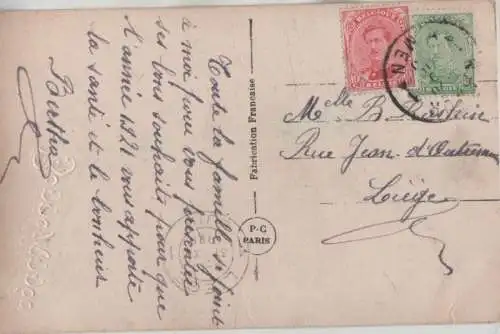 Toute la famille se joint
à moi pour vous présenter
ses bons souhaits pour que
l'année 1921 vous apporte
la santé et le bonheur
Berthe
Fabrication Française
P-C
PARIS
BELGIQUE
MEN
Melle B.
Rue Jean d'Outremeuse
Liège